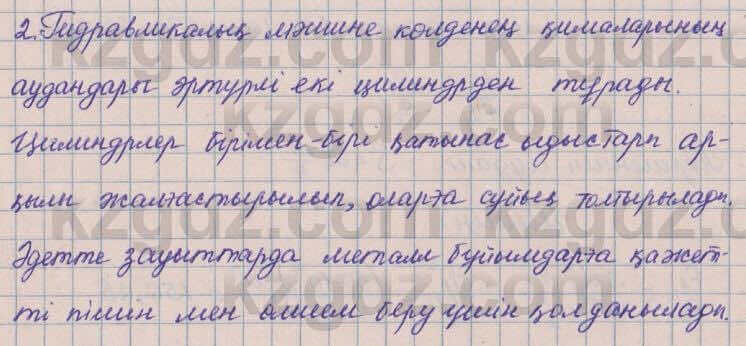 2. Гидравликалық мәшине көлденең қималарының
аудандары әртүрлі екі цилиндрден тұрады.
Цилиндрлер бірімен-бірі қатынас ыдыстары ар-
қылы жалғастырылып, оларға сұйық толтырылады.
Әдетте зауыттарда металл бұйымдарға қажет-
ті пішін мен өлшем беру үшін қолданылады.
kzgdz.com